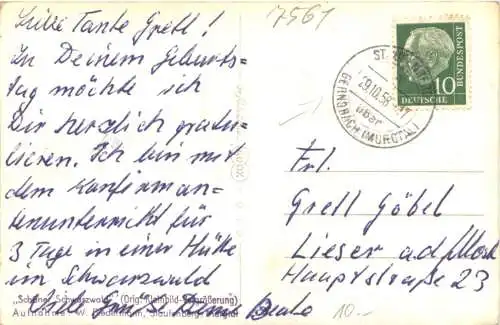 Liebe Tante Gretl!
Zu Deinem Geburts-
tag möchte ich
Dir herzlich gratu-
lieren. Ich bin mit
dem Konfirman-
tenunterricht für
3 Tage in einer Hütte
im Schwarzwald
Viele Grüße Deine Beate
"Schöner Schwarzwald" (Orig. Kleinbild-Vergrößerung)
Aufnahme: W.
7561
29.10.58
über
GERNSBACH (MURGTAL)
10
DEUTSCHE
BUNDESPOST
Frl.
Gretl Göbel
Lieser a d Mosel
Hauptstraße 23
10.-